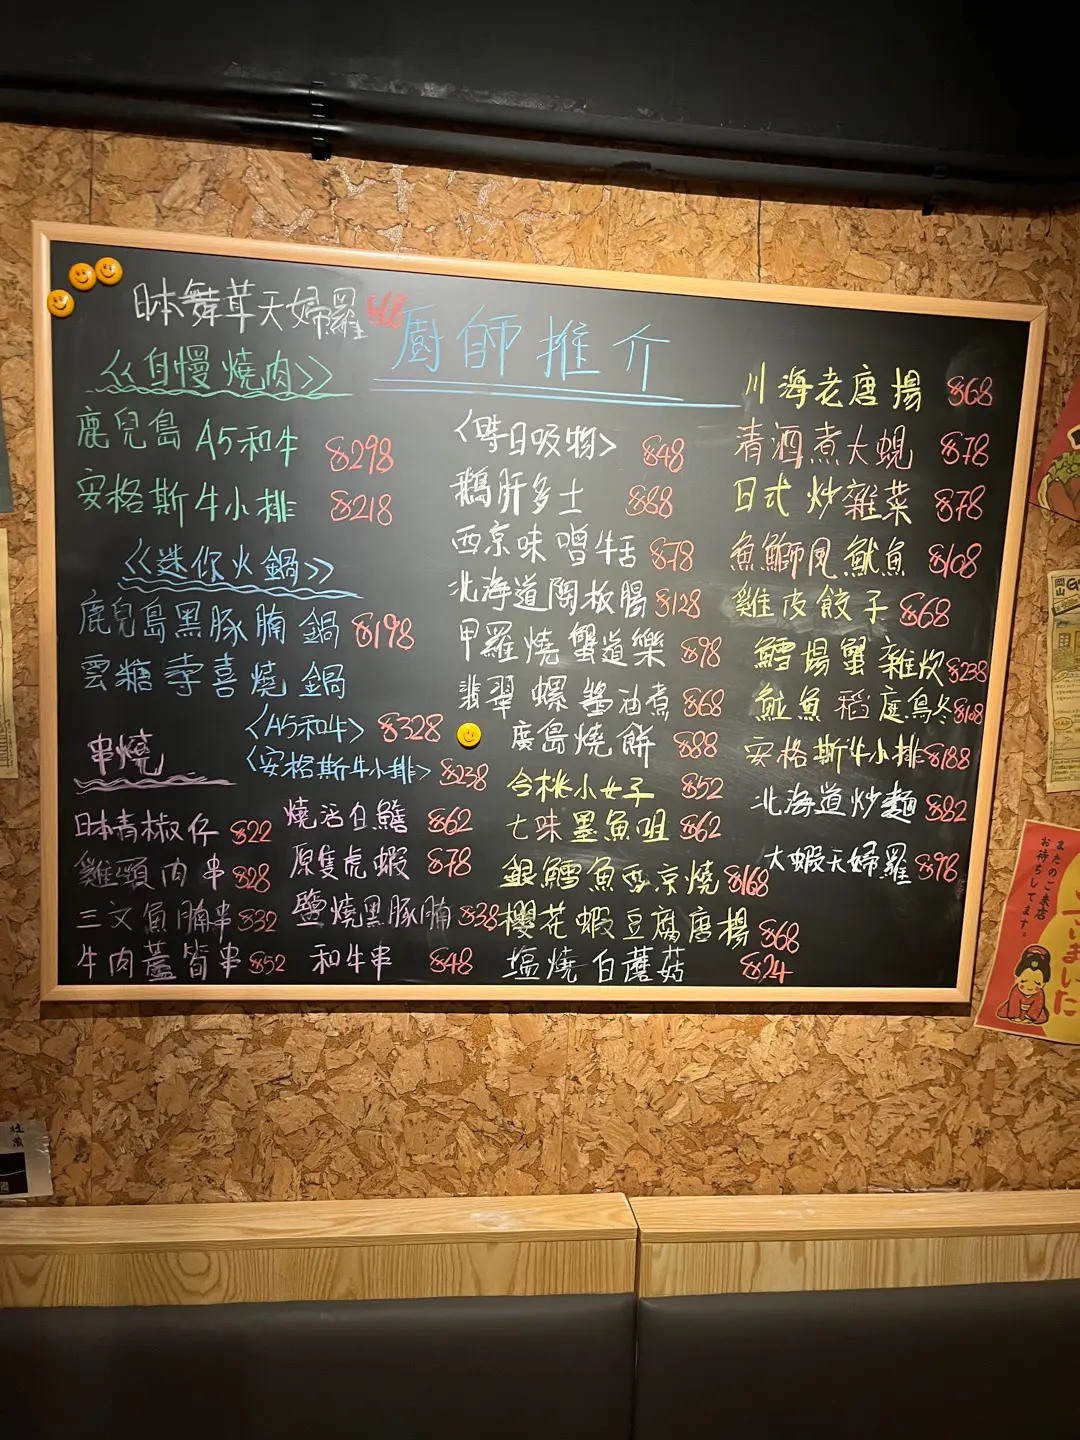 日本舞茸天婦羅 $68
廚師推介
《自慢燒肉》
鹿兒島 A5和牛 $298
安格斯牛小排 $218
《迷你火鍋》
鹿兒島黑豚腩鍋 $198
雲糖壽喜燒鍋
〈A5和牛〉 $328
〈安格斯牛小排〉 $238
串燒
日本青椒仔 $22
雞頸肉串 $28
三文魚腩串 $32
牛肉蘆筍串 $52
燒活白鱔 $62
原隻虎蝦 $78
鹽燒黑豚腩 $38
和牛串 $48
〈每日吸物〉 $48
鵝肝多士 $88
西京味噌牛舌 $78
北海道陶板腸 $128
甲羅燒蟹道樂 $98
翡翠螺醬油煮 $68
廣島燒餅 $88
合桃小女子 $52
七味墨魚咀 $62
銀鱈魚西京燒 $168
櫻花蝦豆腐唐揚 $68
塩燒白蘑菇 $24
川海老唐揚 $68
清酒煮大蜆 $78
日式炒雜菜 $78
魚鰤風魷魚 $108
雞皮餃子 $68
鱈場蟹雜炊 $238
魟魚稻庭烏冬 $108
安格斯牛小排 $188
北海道炒麵 $82
大蝦天婦羅 $98
またのご来店
お待ちしてます。